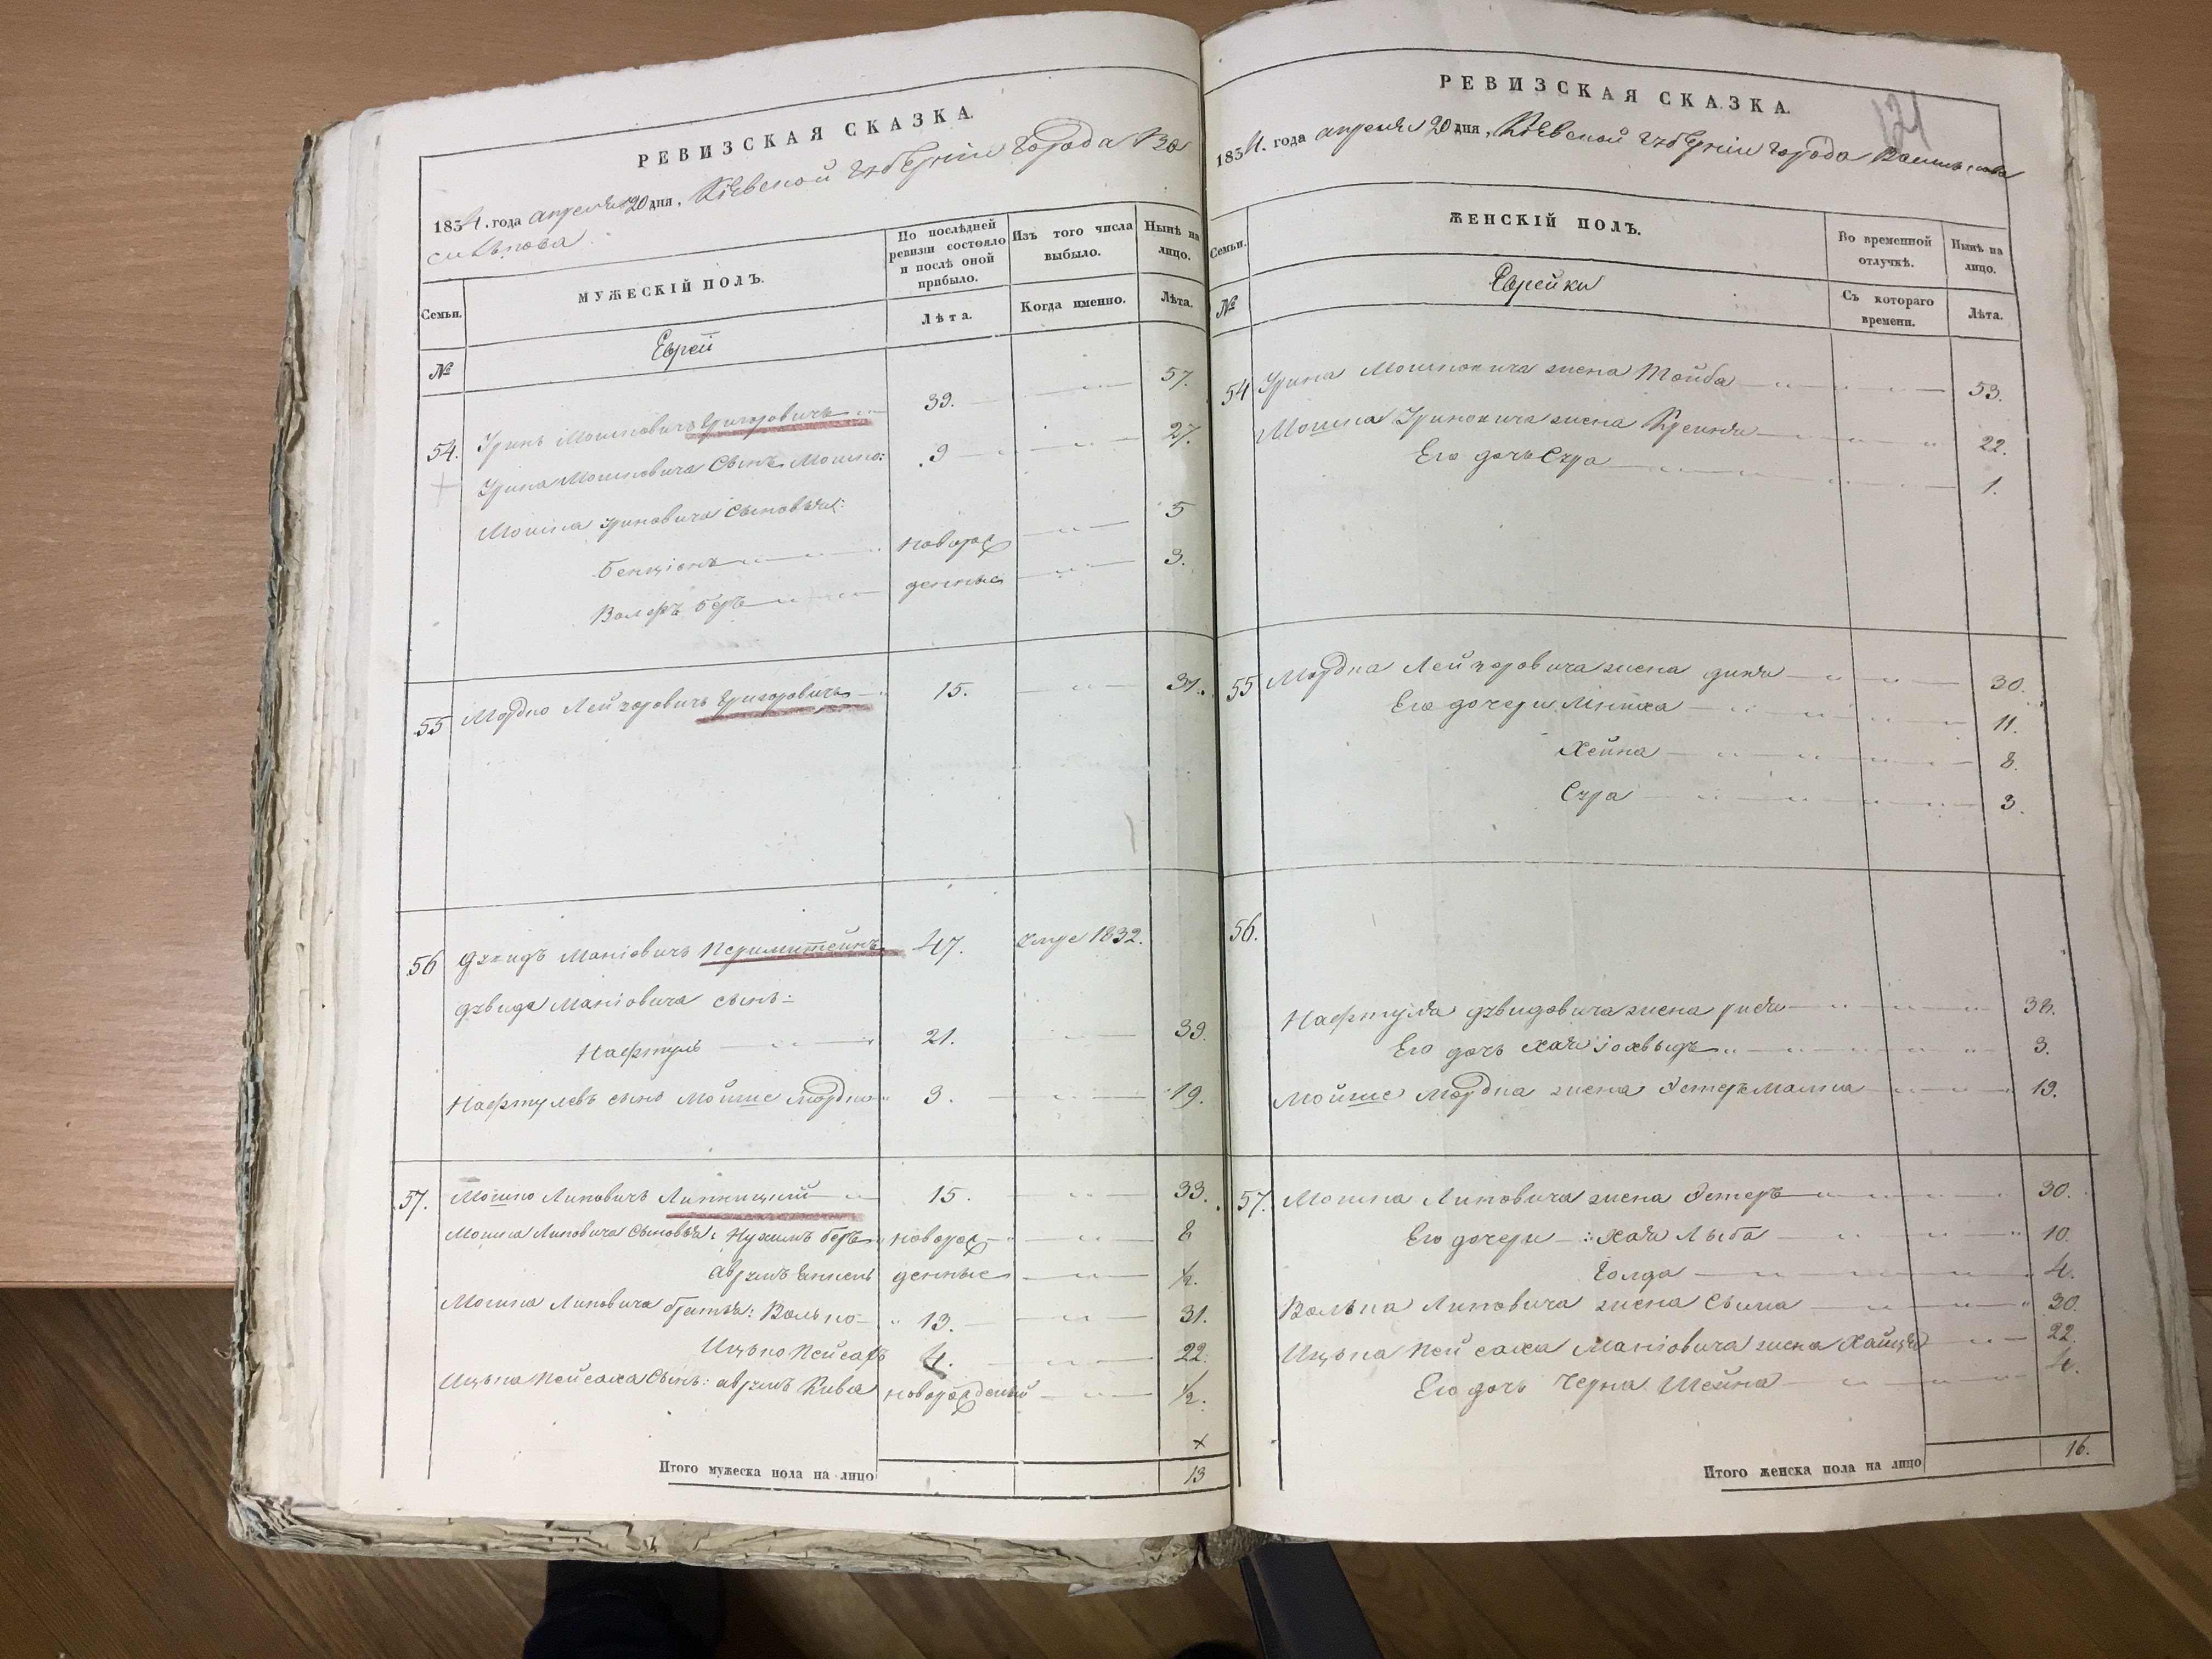 РЕВИЗСКАЯ СКАЗКА.
1854. года апреля 20 дня, Кіевской Губерніи Города Ва
силькова
Семьи.
МУЖЕСКІЙ ПОЛЪ.
По послѣдней ревизи состояло и послѣ оной прибыло.
Изъ того числа выбыло.
Нынѣ на лицо.
№
Еврей
Лѣта.
Когда именно.
Лѣта.
54. Уринъ Мошковичъ Григоровичъ 39. 57.
Урина Мошковича Сынъ Мошко: 9 27.
Мошка Уриновича Сыновья:
Бенціонъ новорож 5
Волфъ беръ денные 3.
55 Мордко Лейзоровичъ Григоровичъ 15. 31.
56 Давидъ Маніовичъ Перимштейнъ 47. умре 1832.
Давида Маніовича сынъ:
Нафтулъ 21. 39.
Нафтулевъ сынъ Мойше Мордко 3. 19.
57. Мошко Липовичъ Липницкий 15. 33.
Мошка Липовича Сыновья: Нухимъ беръ новорож 8
Аврумъ денные ½.
Мошка Липовича братья: Волько 13. 31.
Ицько Пейсахъ 4. 22.
Ицька Пейсаха Сынъ: Аврумъ Кива новорожденый ½.
х
Итого мужеска пола на лицо 13
РЕВИЗСКАЯ СКАЗКА.
121
1854. года апреля 20 дня, Кіевской Губерніи города Василькова
Семьи.
ЖЕНСКІЙ ПОЛЪ.
Во временной отлучкѣ.
Нынѣ на лицо.
№
Еврейки
Съ котораго времени.
Лѣта.
54 Урина Мошковича жена Тойба 53.
Мошка Уриновича жена Крейндя 22.
Его дочь Сура 1.
55 Мордка Лейзоровича жена Диня 30.
Его дочери 11.
Хейна 8.
Сура 3.
56.
Нафтула Давидовича жена 38.
Его дочь Хая Іохвыдъ 3.
Мойше Мордка жена Эстеръ Малка 19.
57. Мошка Липовича жена Эстеръ 30.
Его дочери: Хая Лыба 10.
Голда 4.
Волька Липовича жена Сыма 30.
Ицька Пейсаха Маніовича жена 22.
Его дочь Черна Шейна 4.
Итого женска пола на лицо 16.